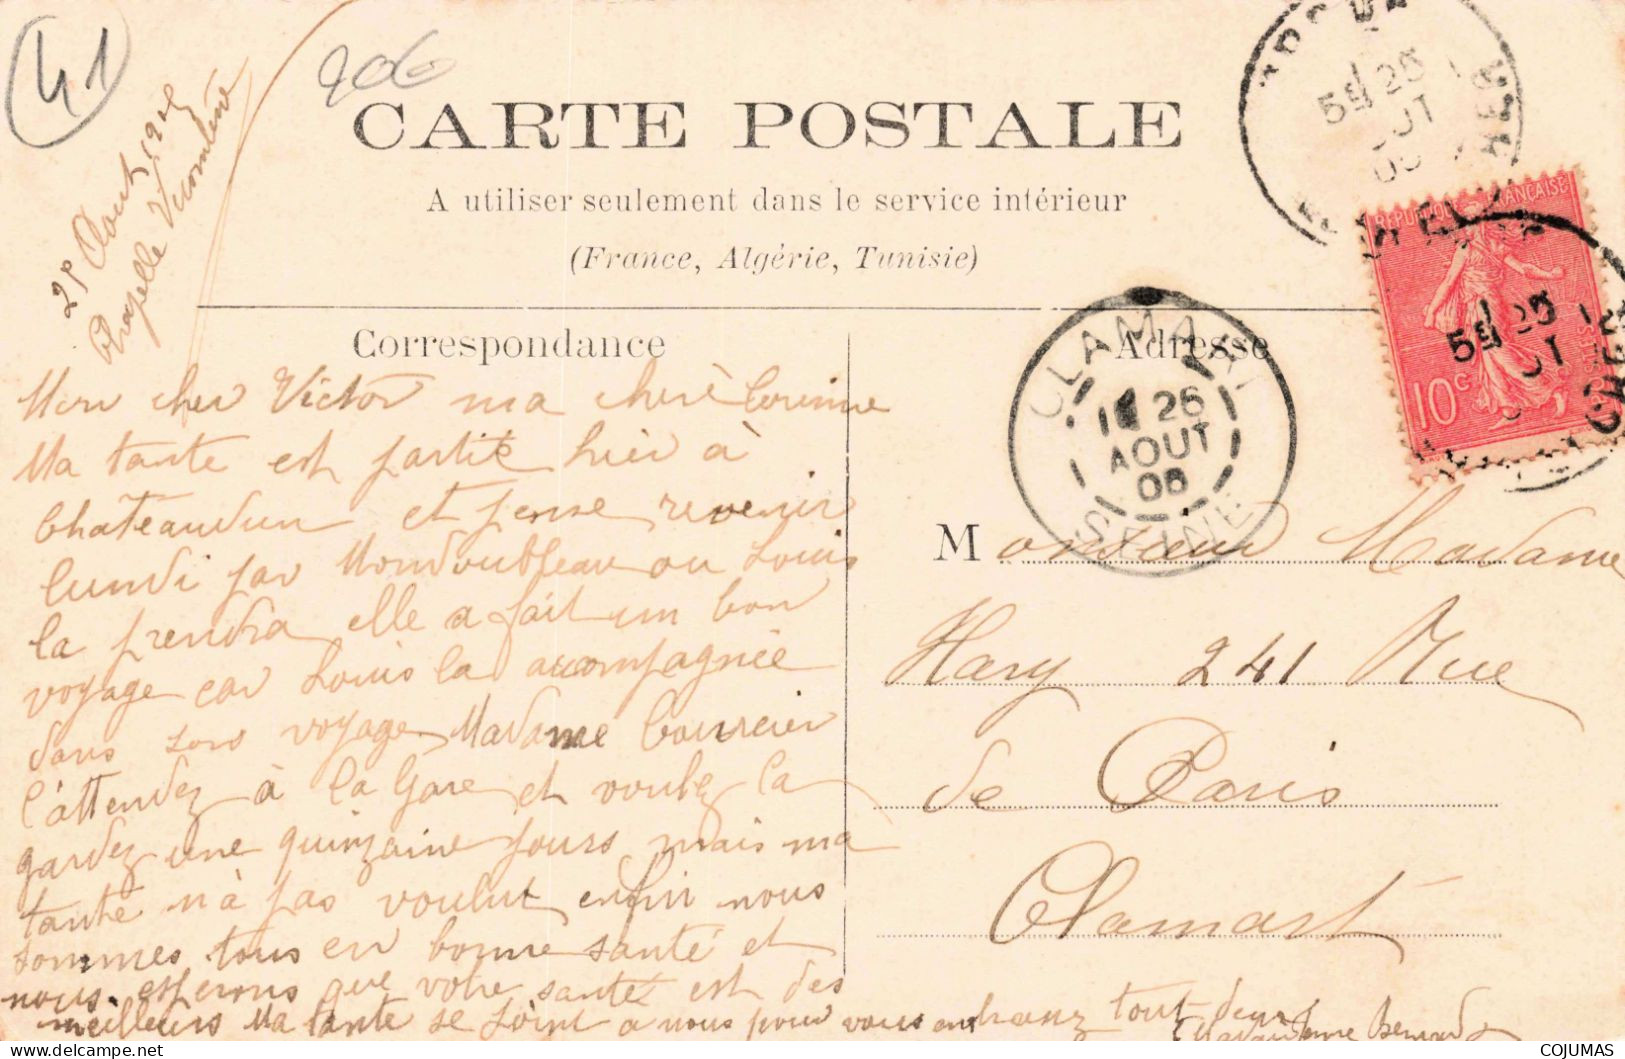 41
206
CARTE POSTALE
A utiliser seulement dans le service intérieur
(France, Algérie, Tunisie)
Chapelle Vicomtesse
Correspondance
Adresse
CLAMART
26
AOUT
06
SEINE
REPUBLIQUE FRANÇAISE
10c
POSTES
Mon cher Victor ma cheré Corinne
Ma tante est partie hièr à
Chateaudun et pense revenir
lundi par Mondoubleau ou Louis
la prendra elle a fait un bon
voyage car Louis la accompagnée
dans son voyage Madame Courcier
l'attendez à la Gare et voulez la
gardez une quinzaine jours mais ma
tante n'à pas voulut enfin nous
sommes tous en bonne santé et
nous esperons que votre santé est des
meilleurs Ma tante se joint a nous pour vous embrassez tout deux
Monsieur Madame
Hary 241 Rue
de Paris
Clamart
COJUMAS